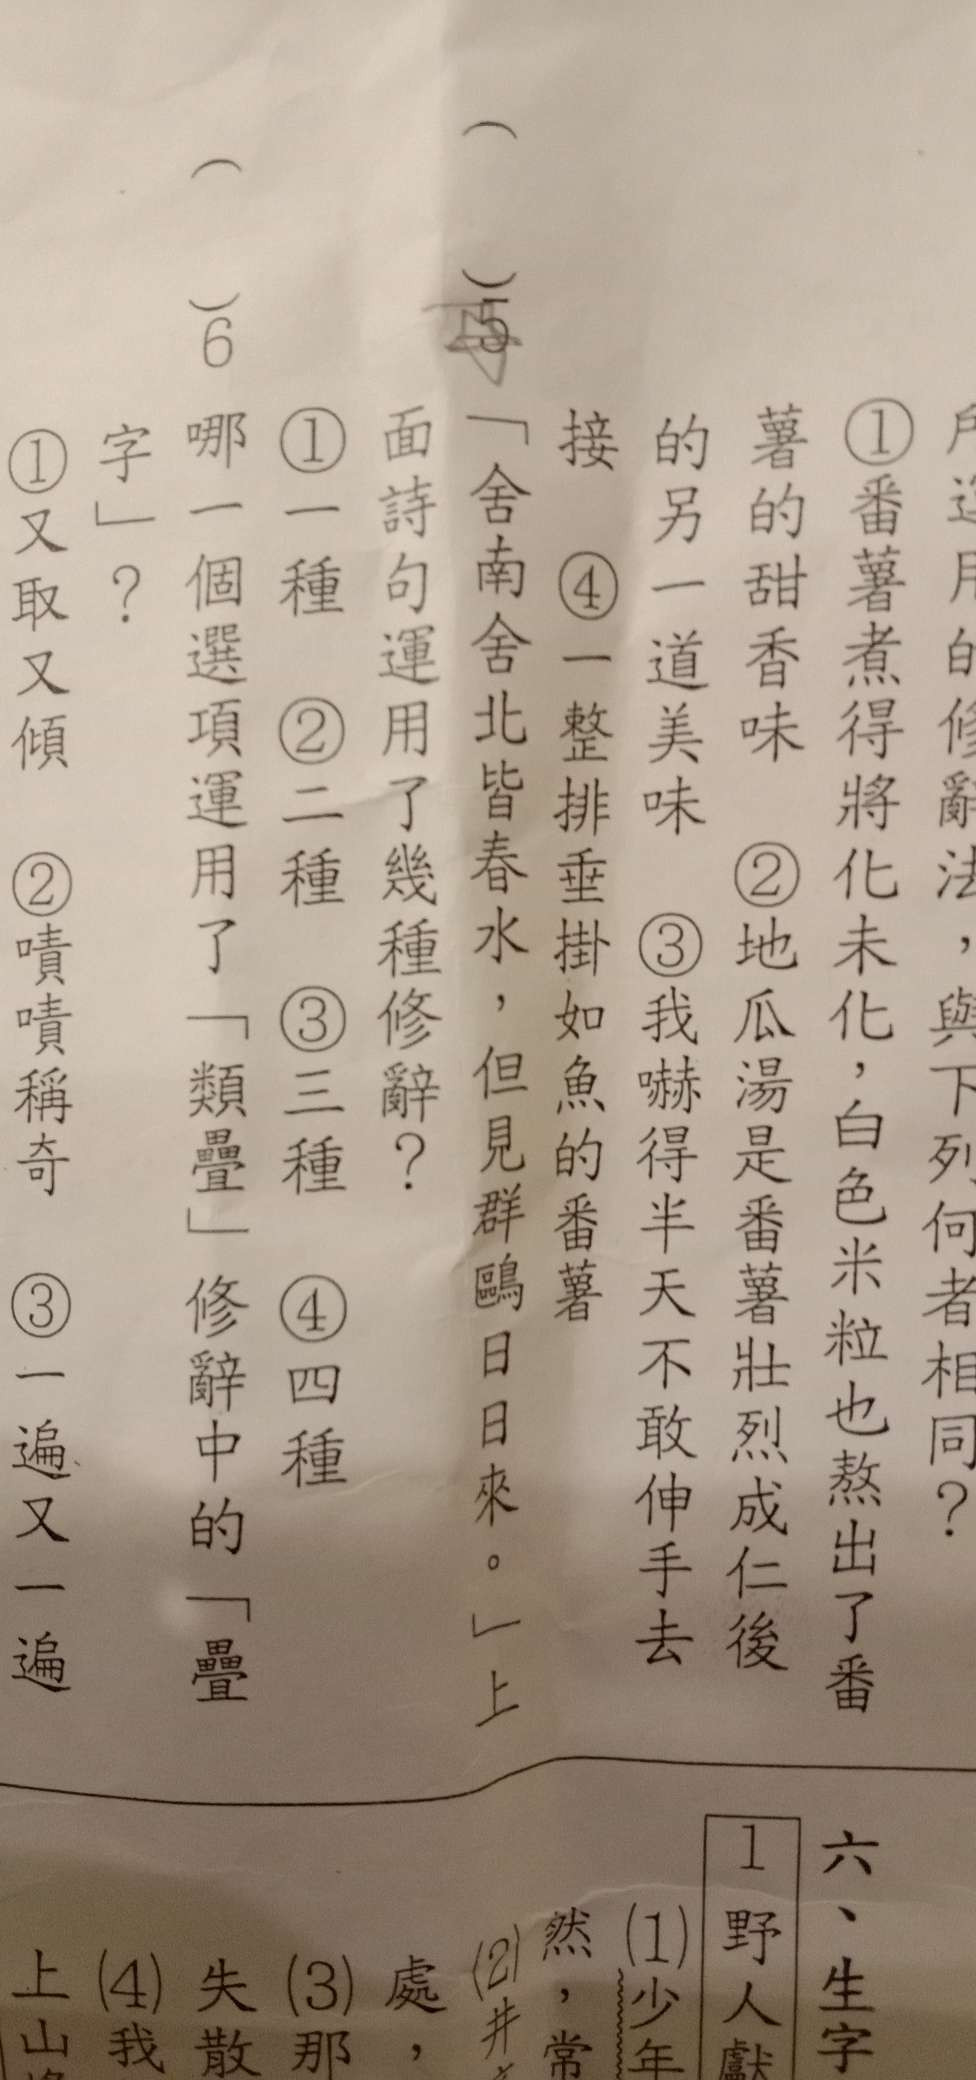 所選用的修辭法，與下列何者相同？
①番薯煮得將化未化，白色米粒也熬出了番
薯的甜香味　②地瓜湯是番薯壯烈成仁後
的另一道美味　③我嚇得半天不敢伸手去
接　④一整排垂掛如魚的番薯
（　）5「舍南舍北皆春水，但見群鷗日日來。」上
面詩句運用了幾種修辭？
①一種　②二種　③三種　④四種
（　）6哪一個選項運用了「類疊」修辭中的「疊
字」？
①又取又傾　②嘖嘖稱奇　③一遍又一遍
六、生字
1野人獻
(1)少年
然，常
(2)井
處，
(3)那
失散
(4)我
上山